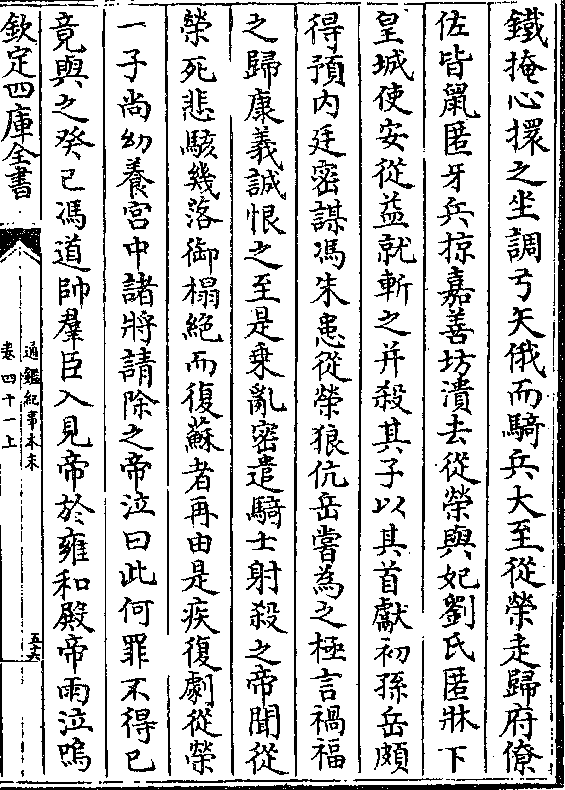 鐵掩心擐之坐調弓矢俄而騎兵大至從榮走歸府僚
佐皆鼠匿牙兵掠嘉善坊潰去從榮與妃劉氏匿牀下
皇城使安從益就斬之并殺其子以其首獻初孫岳頗
得預内廷密謀馮朱患從榮狼伉岳嘗為之極言禍福
之歸康義誠恨之至是乗亂密遣騎士射殺之帝聞從
榮死悲駭幾落御榻絶而復蘇者再由是疾復劇從榮
一子尚幼養宫中諸將請除之帝泣曰此何罪不得已
竟與之癸已馮道帥羣臣入見帝於雍和殿帝雨泣嗚
欽定四庫全書
通鑑紀事本末
卷四十一上
五六